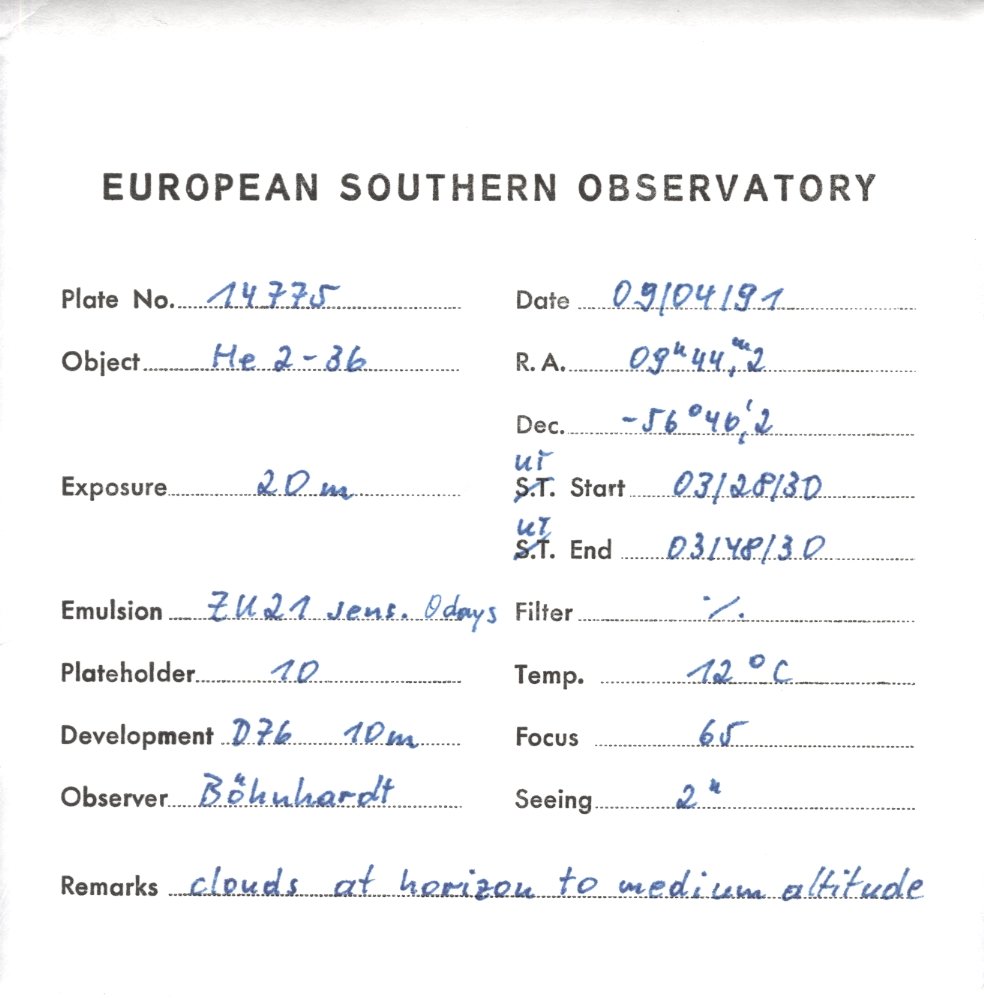 EUROPEAN SOUTHERN OBSERVATORY
Plate No. 14775 Date 09/04/91
Object He 2-36 R.A. 09ʰ44,ᵐ2
Dec. -56°46,'2
UT
Exposure 20m S.T. Start 03/28/30
UT
S.T. End 03/48/30
Emulsion ZU21 sens. 0days Filter ·/.
Plateholder 10 Temp. 12°C
Development D76 10m Focus 65
Observer Böhnhardt Seeing 2"
Remarks clouds at horizon to medium altitude